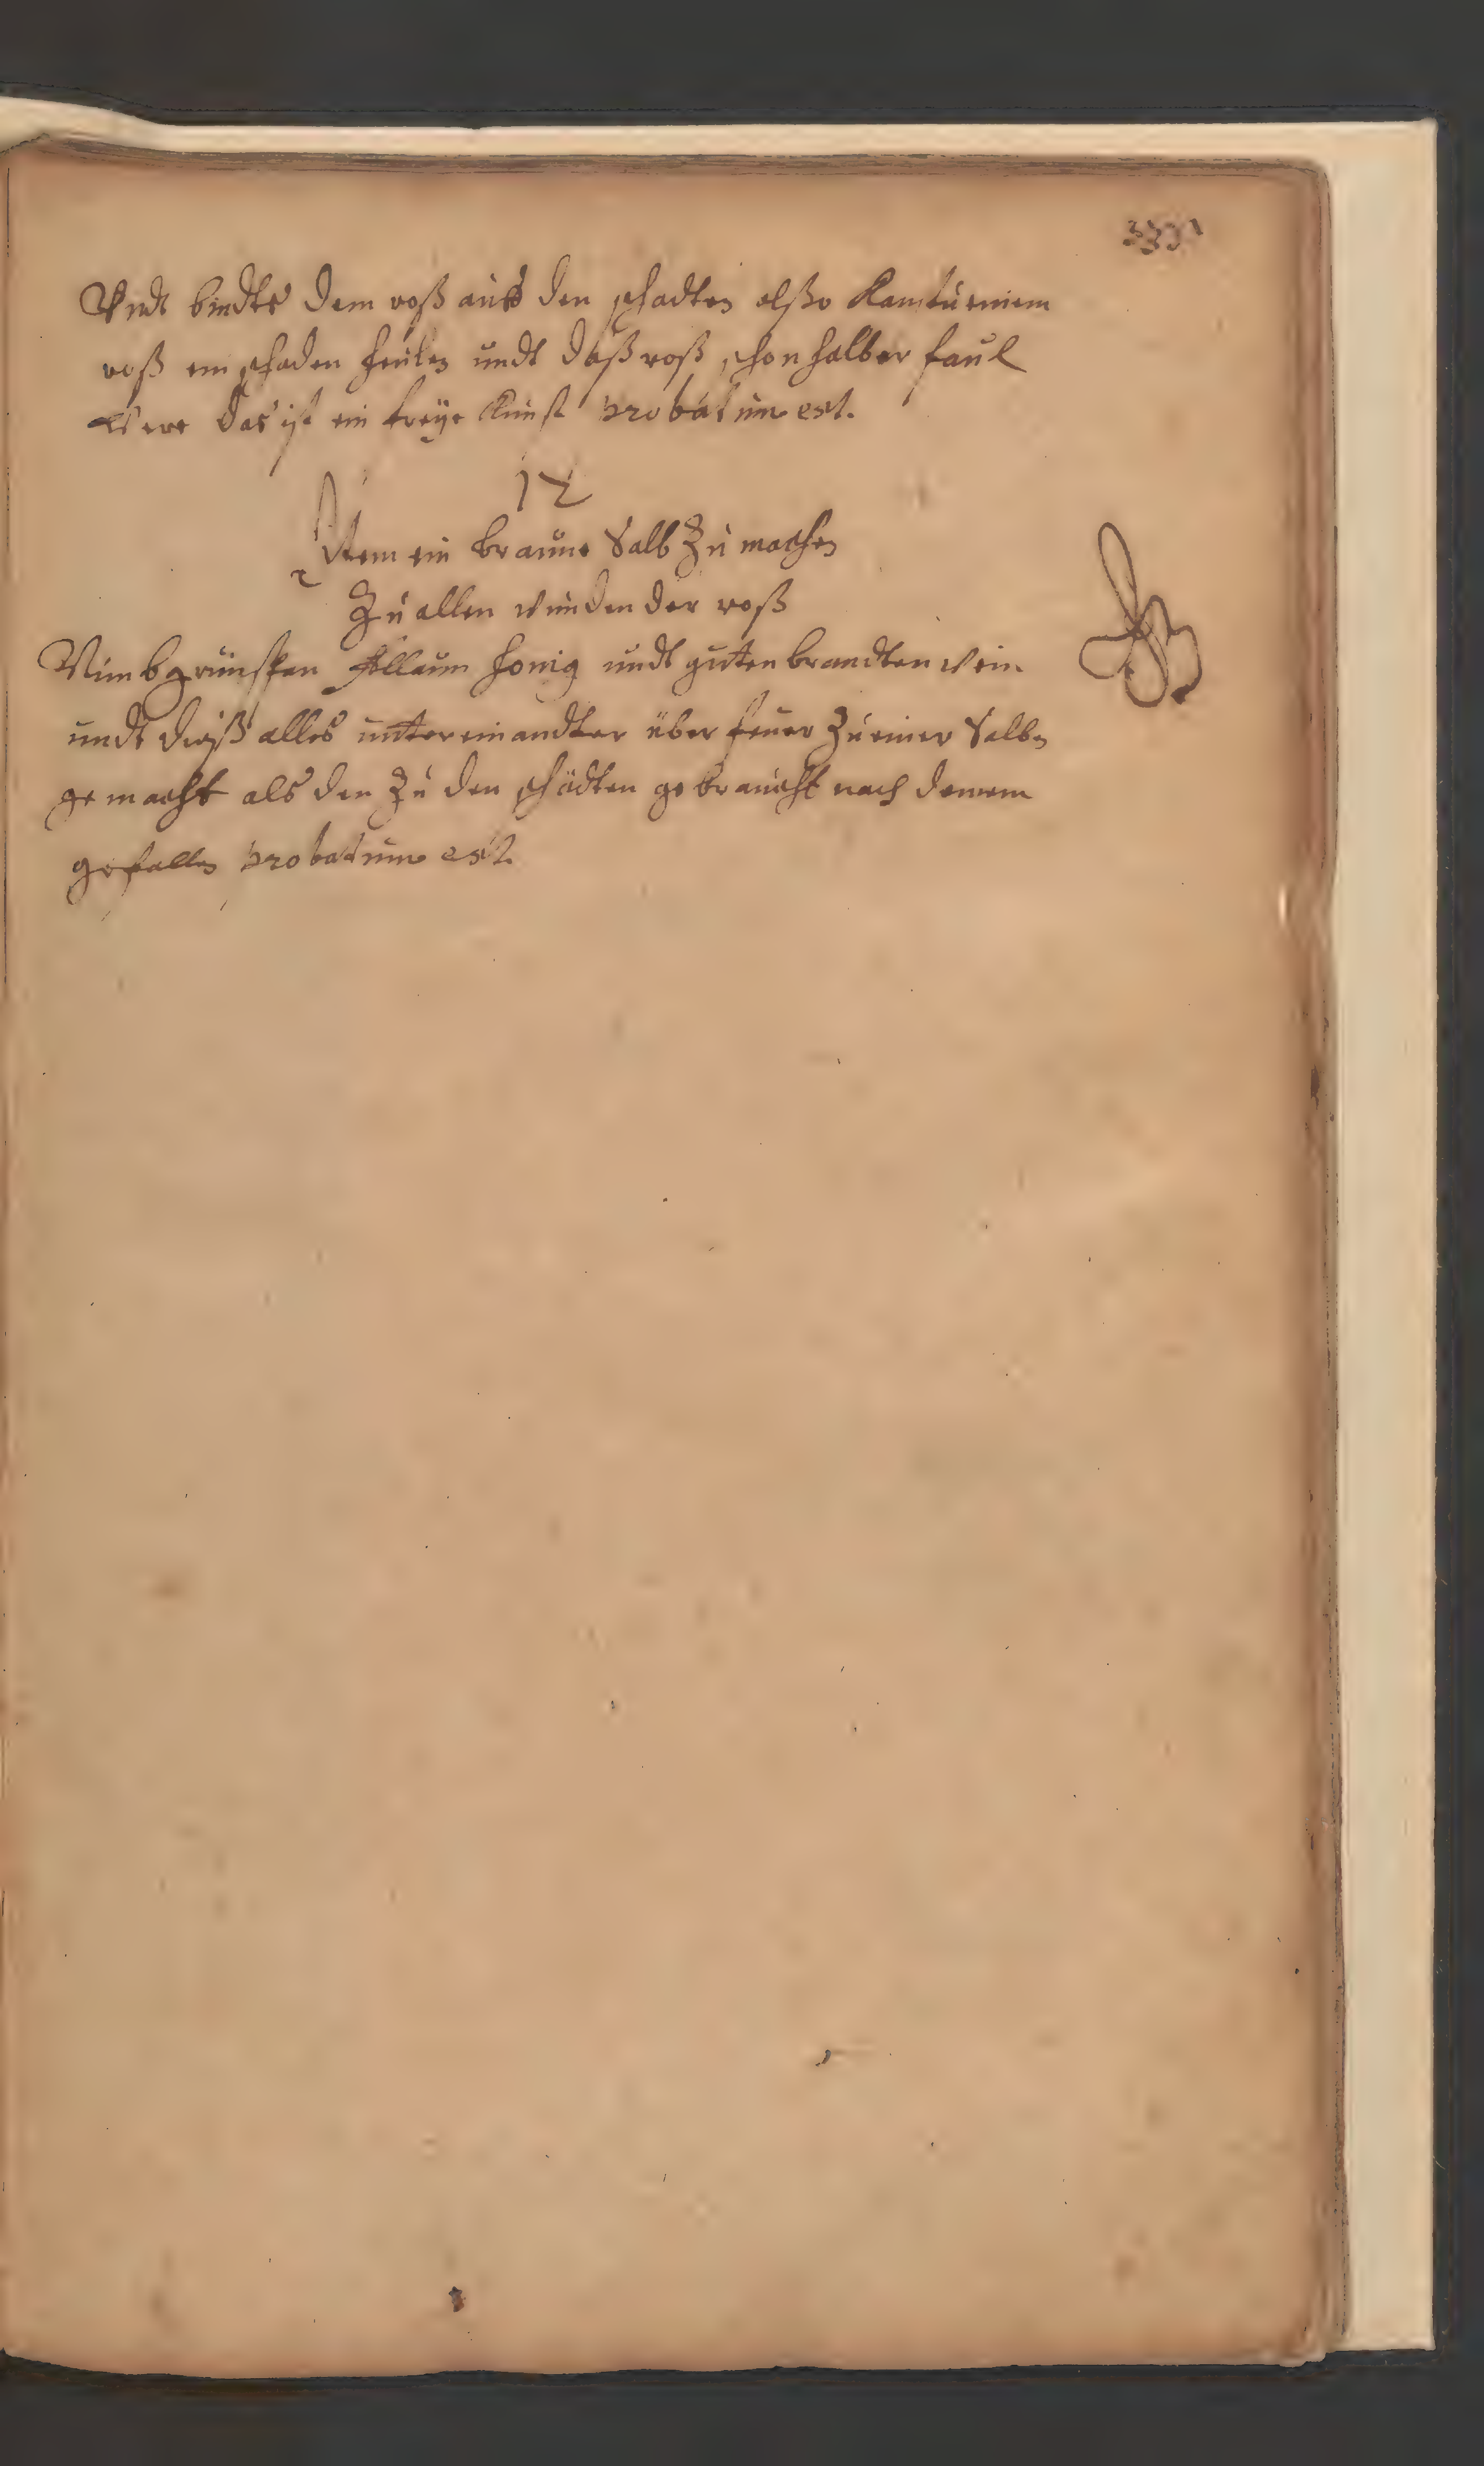 Undt bindts dem roß auff den schadten alßo kanstu einem
roß ein schaden heilen undt daß roß schon halber faul
were das ist ein freye Kunst probatum est.
12
Item ein braune Salb Zu machen
Zu allen wunden der roß
Nimb grünspan Allaun honig undt guten brandten wein
undt diß alles untereinandter über feuer Zu einer Salben
gemacht als den Zu den schädten gebraucht nach deinem
gefallen probatum est.